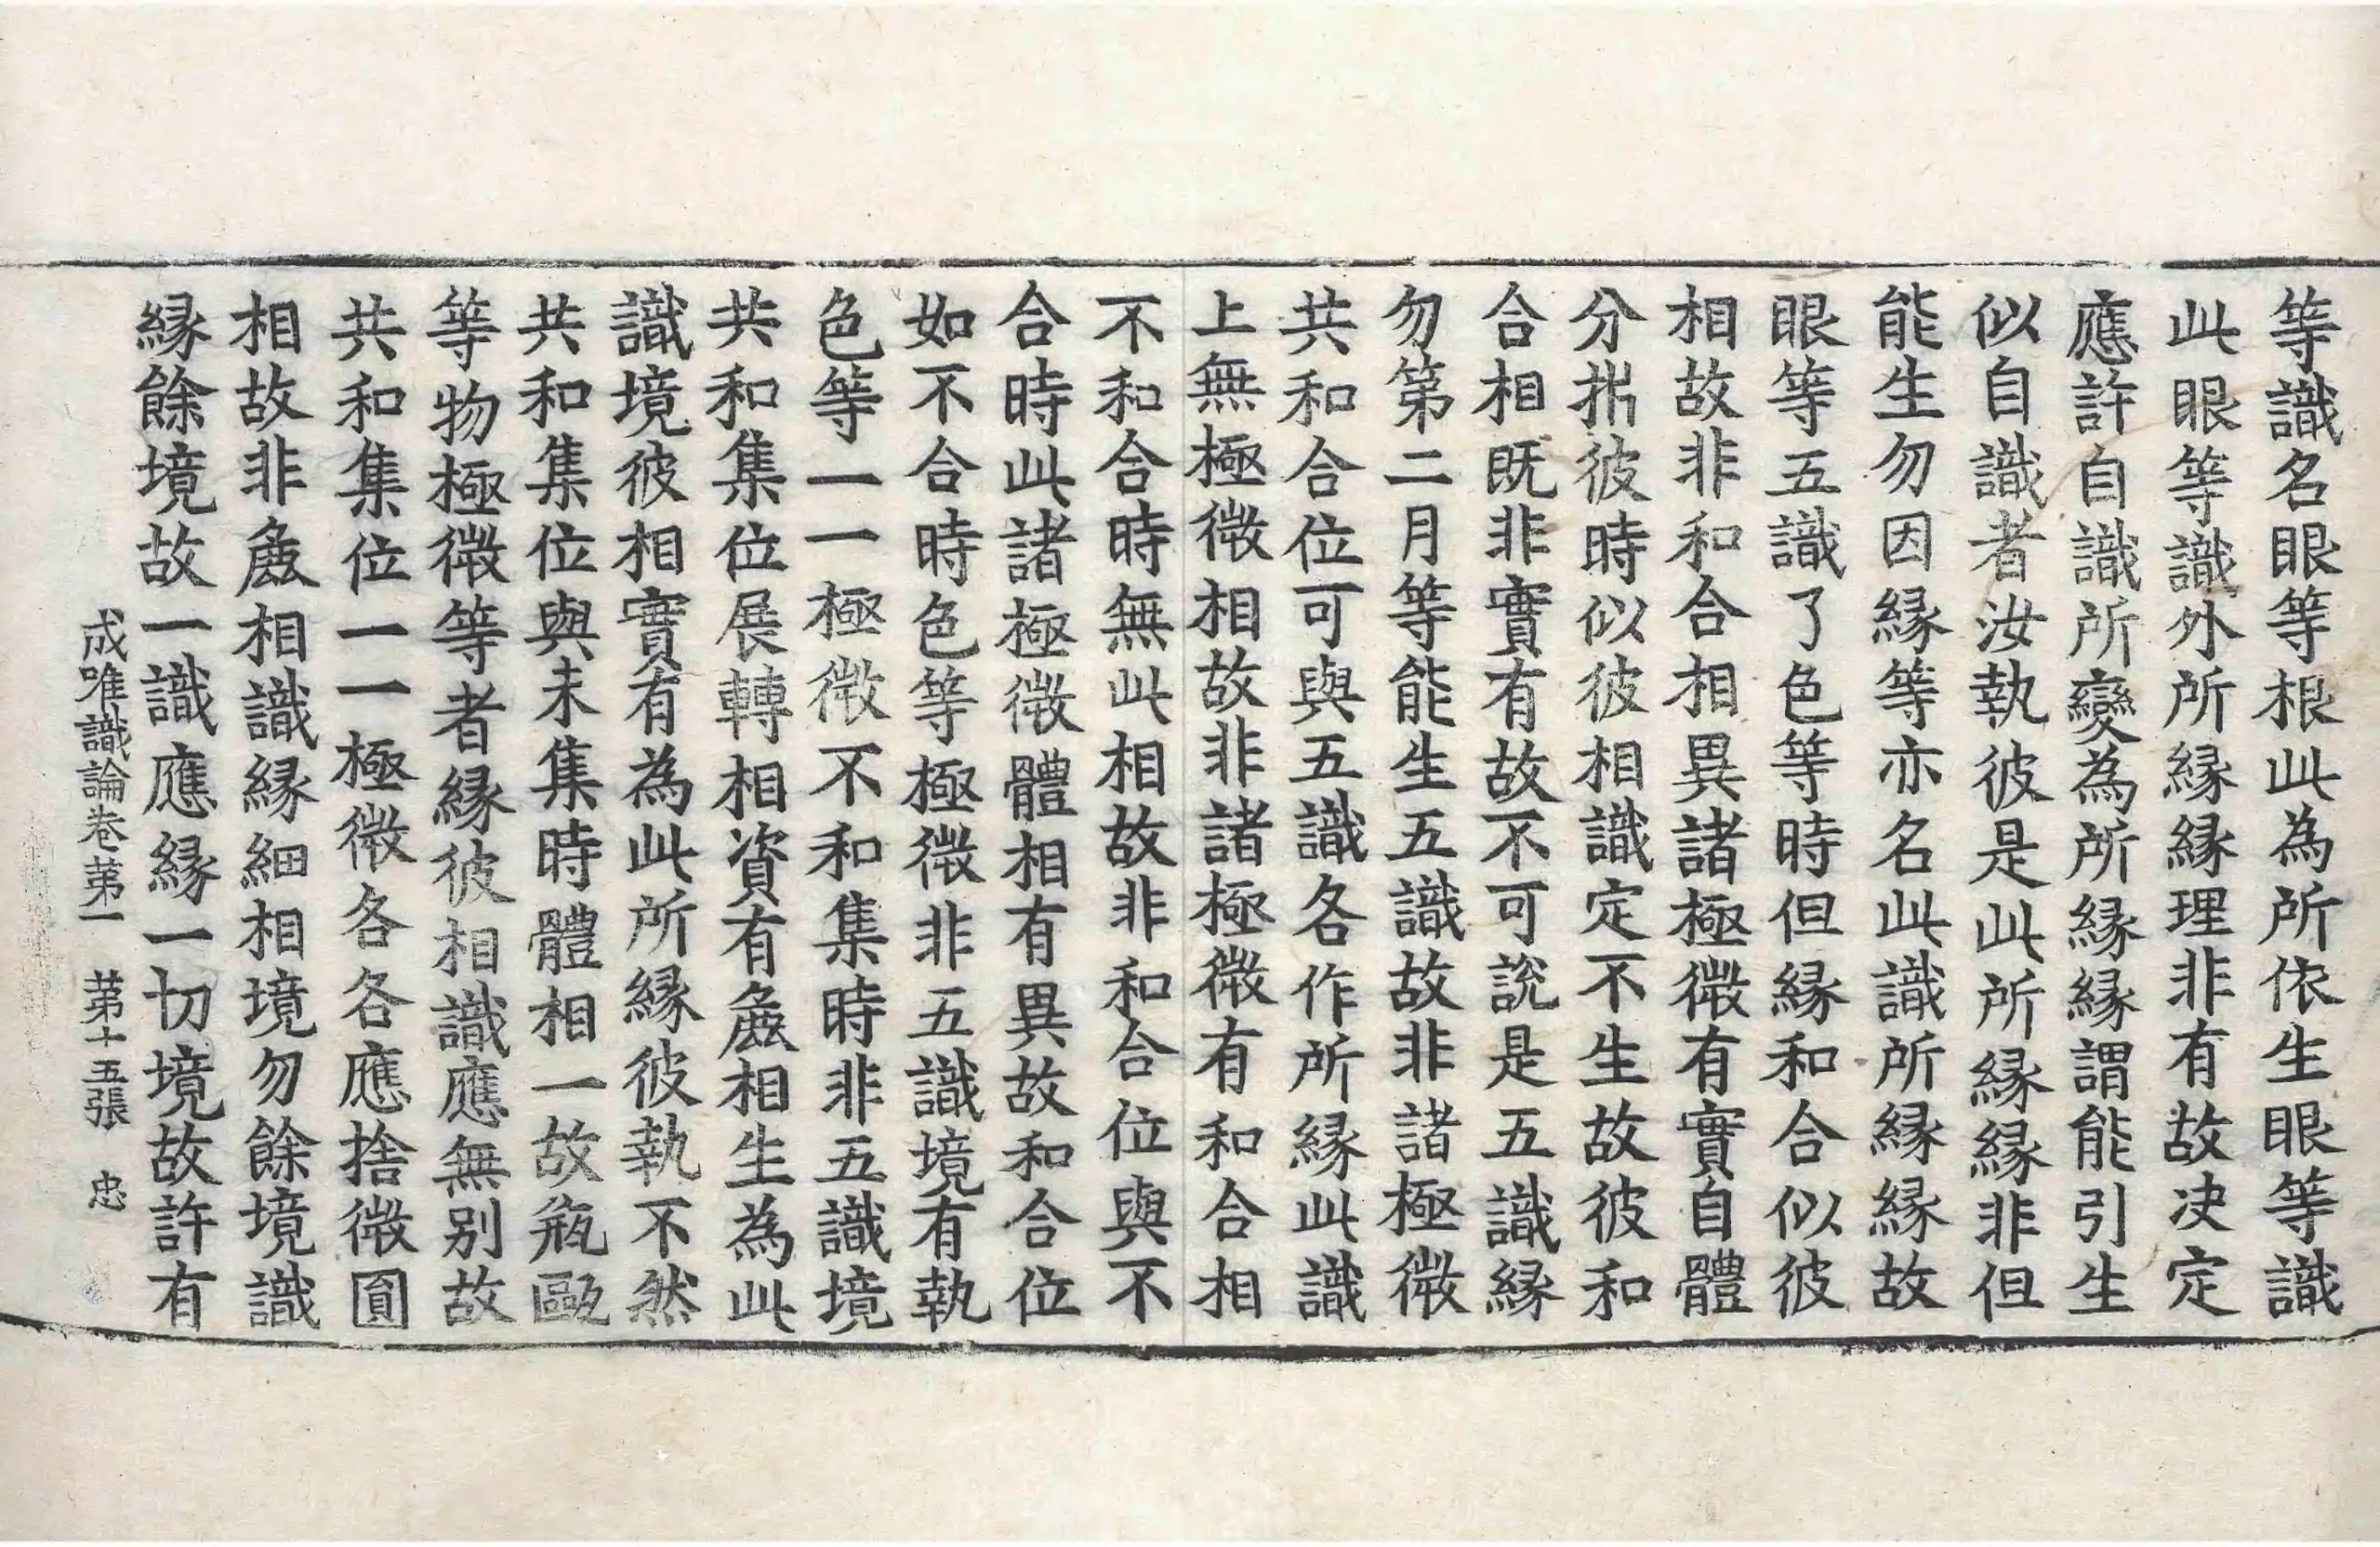 等識名眼等根此為所依生眼等識
此眼等識外所縁縁理非有故决定
應許自識所變為所縁縁謂能引生
似自識者汝執彼是此所縁縁非但
能生勿因縁等亦名此識所縁縁故
眼等五識了色等時但縁和合似彼
相故非和合相異諸極微有實自體
分析彼時似彼相識定不生故彼和
合相既非實有故不可說是五識縁
勿第二月等能生五識故非諸極微
共和合位可與五識各作所縁此識
上無極微相故非諸極微有和合相
不和合時無此相故非和合位與不
合時此諸極微體相有異故和合位
如不合時色等極微非五識境有執
色等一一極微不和集時非五識境
共和集位展轉相資有麁相生為此
識境彼相實有為此所縁彼執不然
共和集位與未集時體相一故瓶甌
等物極微等者縁彼相識應無別故
共和集位一一極微各各應捨微圓
相故非麁相識縁細相境勿餘境識
縁餘境故一識應縁一切境故許有
成唯識論卷第一 第十五張 忠